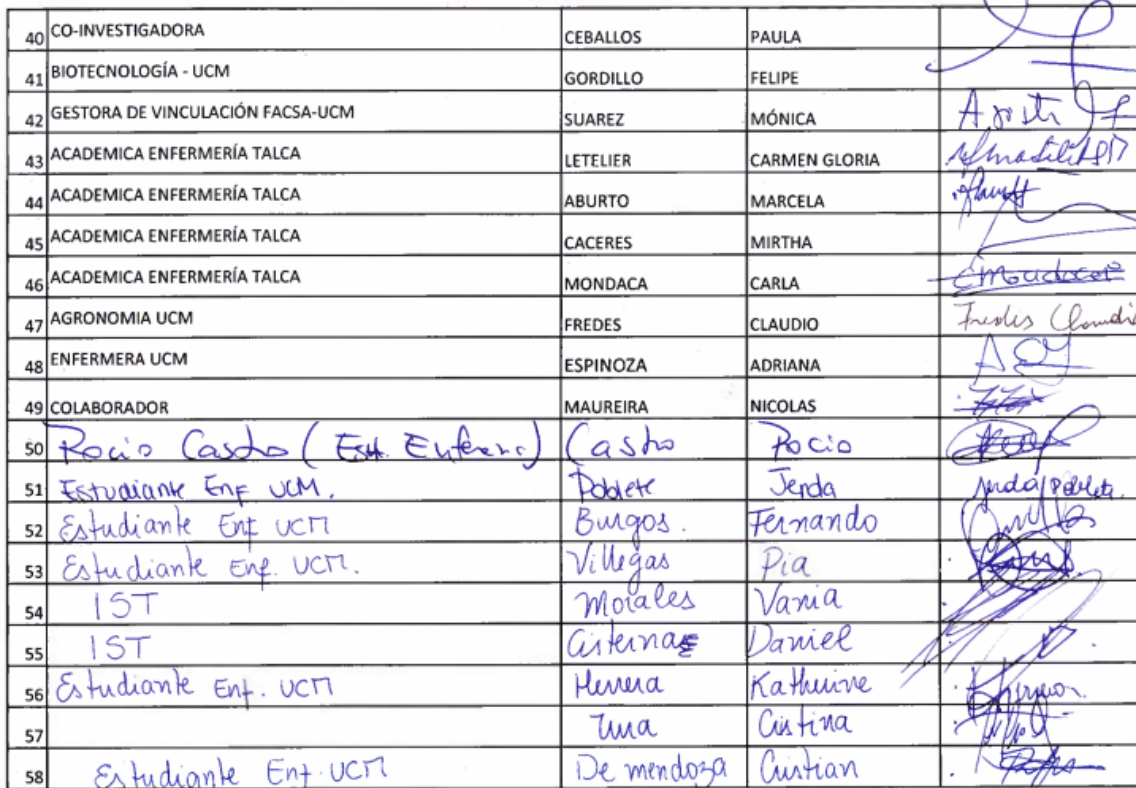 40 CO-INVESTIGADORA CEBALLOS PAULA
41 BIOTECNOLOGÍA - UCM GORDILLO FELIPE
42 GESTORA DE VINCULACIÓN FACSA-UCM SUAREZ MÓNICA
43 ACADEMICA ENFERMERÍA TALCA LETELIER CARMEN GLORIA
44 ACADEMICA ENFERMERÍA TALCA ABURTO MARCELA
45 ACADEMICA ENFERMERÍA TALCA CACERES MIRTHA
46 ACADEMICA ENFERMERÍA TALCA MONDACA CARLA CMondaca
47 AGRONOMIA UCM FREDES CLAUDIO Fredes Claudio
48 ENFERMERA UCM ESPINOZA ADRIANA
49 COLABORADOR MAUREIRA NICOLAS
50 Rocio Castro (Est. Enferm) Castro Rocio
51 Estudiante Enf UCM. Poblete Jenda
52 Estudiante Enf UCM Burgos. Fernando
53 Estudiante Enf. UCM. Villegas Pia
54 IST Morales Vania
55 IST Cisternas Daniel
56 Estudiante Enf. UCM Herrera Katherine
57 Cristina
58 Estudiante Enf. UCM De mendoza Cristian